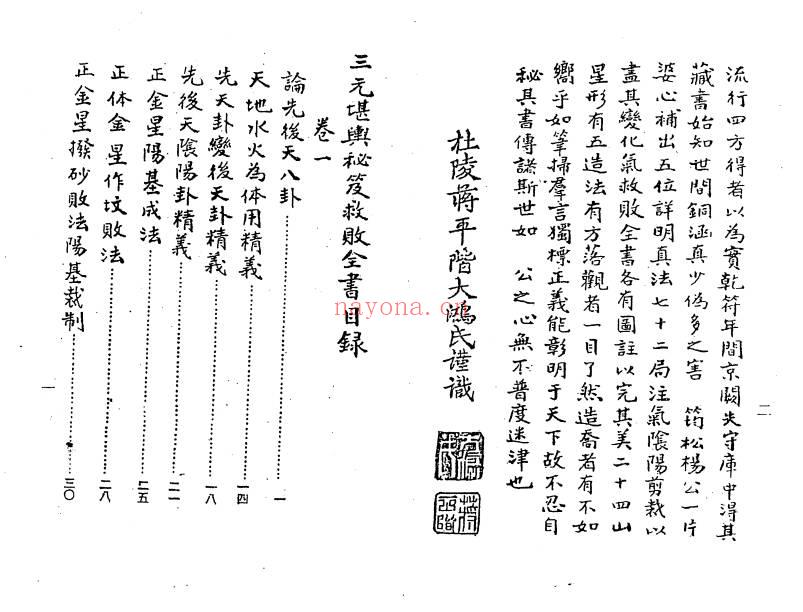 流行四方得者以為寶乾符年間京闕失守庫中得其
藏書始知世間銅函真少偽多之害 筠松楊公一片
婆心補出五位詳明真法七十二局注氣陰陽剪裁以
盡其變化氣救敗全書各有圖註以完其美二十四山
星形有五造法有方落觀者一目了然造喬者有不如
嚮乎如筆掃羣言獨標正義能彰明于天下故不忍自
秘其書傳諸斯世如 公之心無不普度迷津也
杜陵蔣平階大鴻氏謹識
二
三元堪輿秘笈救敗全書目録
卷一
論先後天八卦……一
天地水火為体用精義……一四
先天卦變後天卦精義……一八
先後天陰陽卦精義……二一
正金星陽基成法……二五
正体金星作坟敗法……二八
正金星撥砂敗法陽基裁制……三〇
一
nayona.cn